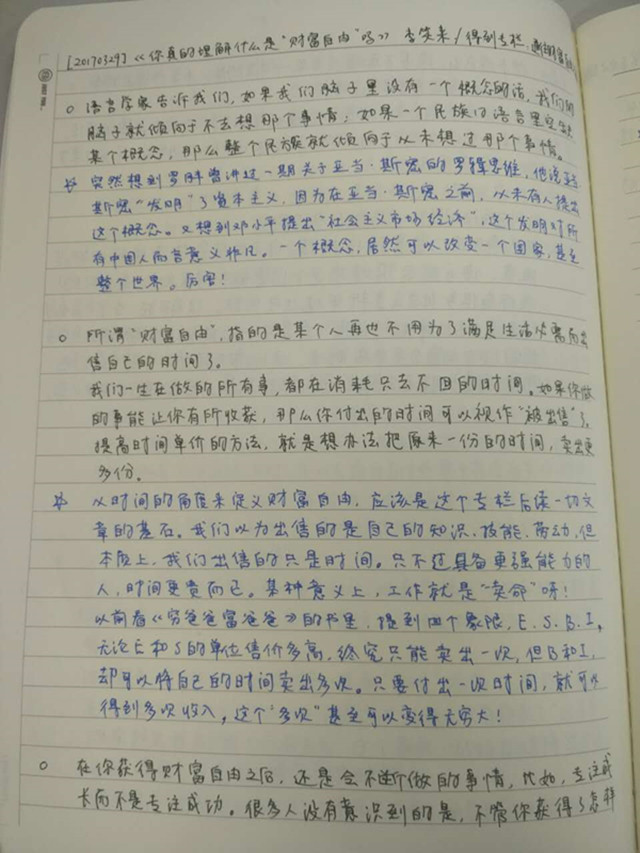 [20170329]《你真的理解什么是"财富自由"吗》 李笑来/得到专栏.通往财富自
○ 语言学家告诉我们,如果我们脑子里没有一个概念的话,我们的
脑子就倾向于不去想那个事情;如果一个民族的语言里
某个概念,那么整个民族就倾向于从未想过那个事情。
☆ 突然想到罗胖曾讲过一期关于亚当·斯密的罗辑思维,他说亚当·
斯密"发明"了资本主义,因为在亚当·斯密之前,从未有人提出
这个概念。又想到邓小平提出"社会主义市场经济",这个发明对所
有中国人而言意义非凡。一个概念,居然可以改变一个国家,甚至
整个世界。厉害!
○ 所谓"财富自由",指的是某个人再也不用为了满足生活必需而出
售自己的时间了。
我们一生在做的所有事,都在消耗只去不回的时间。如果你做
的事能让你有所收获,那么你付出的时间可以视作"被出售"了。
提高时间单价的方法,就是想办法把原来一份的时间,卖出更
多份。
☆ 从时间的角度来定义财富自由,应该是这个专栏后续一切文
章的基石。我们以为出售的是自己的知识、技能、劳动,但
本质上,我们出售的只是时间。只不过具备更强能力的
人,时间更贵而已。某种意义上,工作就是"卖命"呀!
以前看《穷爸爸富爸爸》的书里,提到四个象限,E.S.B.I,
无论E和S的单位售价多高,终究只能卖出一次,但B和I,
却可以将自己的时间卖出多次。只要付出一次时间,就可以
得到多次收入,这个"多次"甚至可以变得无穷大!
○ 在你获得财富自由之后,还是会不断做的事情,比如,专注成
长而不是专注成功。很多人没有意识到的是,不管你获得了怎样